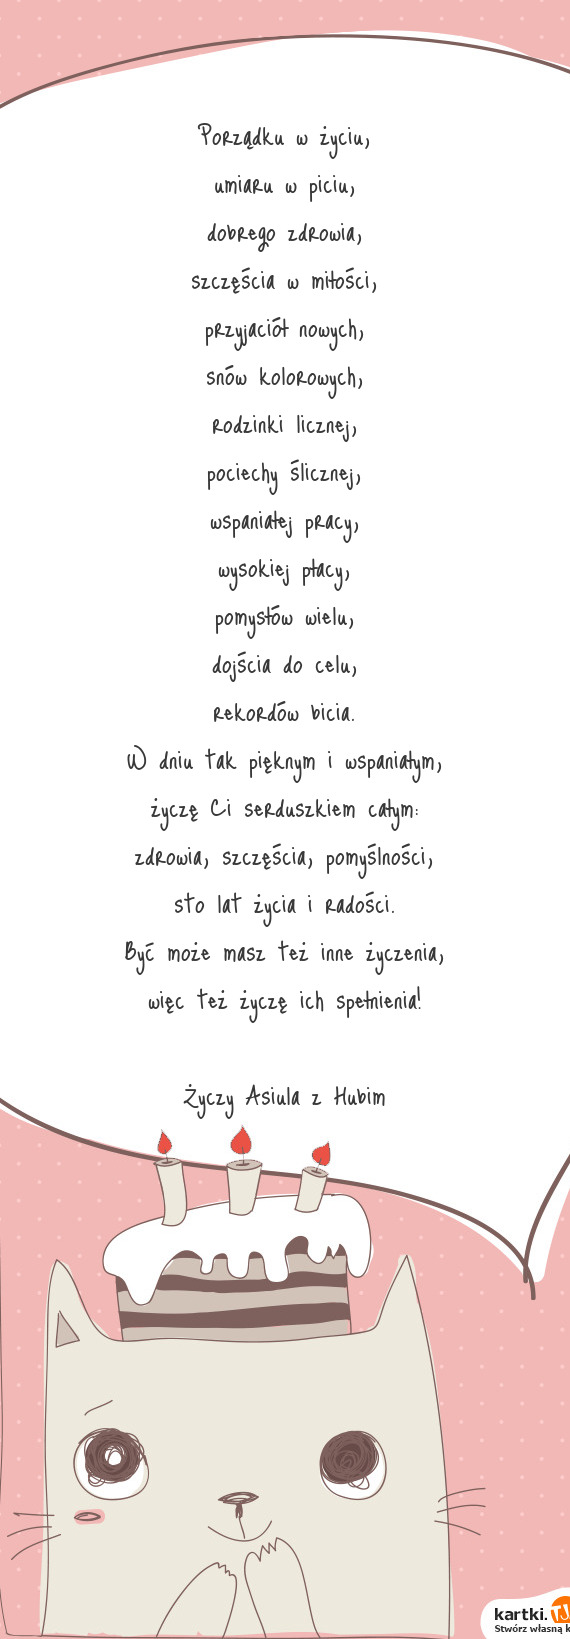 Porządku w życiu,
umiaru w piciu,
dobrego zdrowia,
szczęścia w miłości,
przyjaciół nowych,
snów kolorowych,
rodzinki licznej,
pociechy ślicznej,
wspaniałej pracy,
wysokiej płacy,
pomysłów wielu,
dojścia do celu,
rekordów bicia.
W dniu tak pięknym i wspaniałym,
życzę Ci serduszkiem całym:
zdrowia, szczęścia, pomyślności,
sto lat życia i radości.
Być może masz też inne życzenia,
więc też życzę ich spełnienia!
Życzy Asiula z Hubim
kartki.TJ
Stwórz własną k